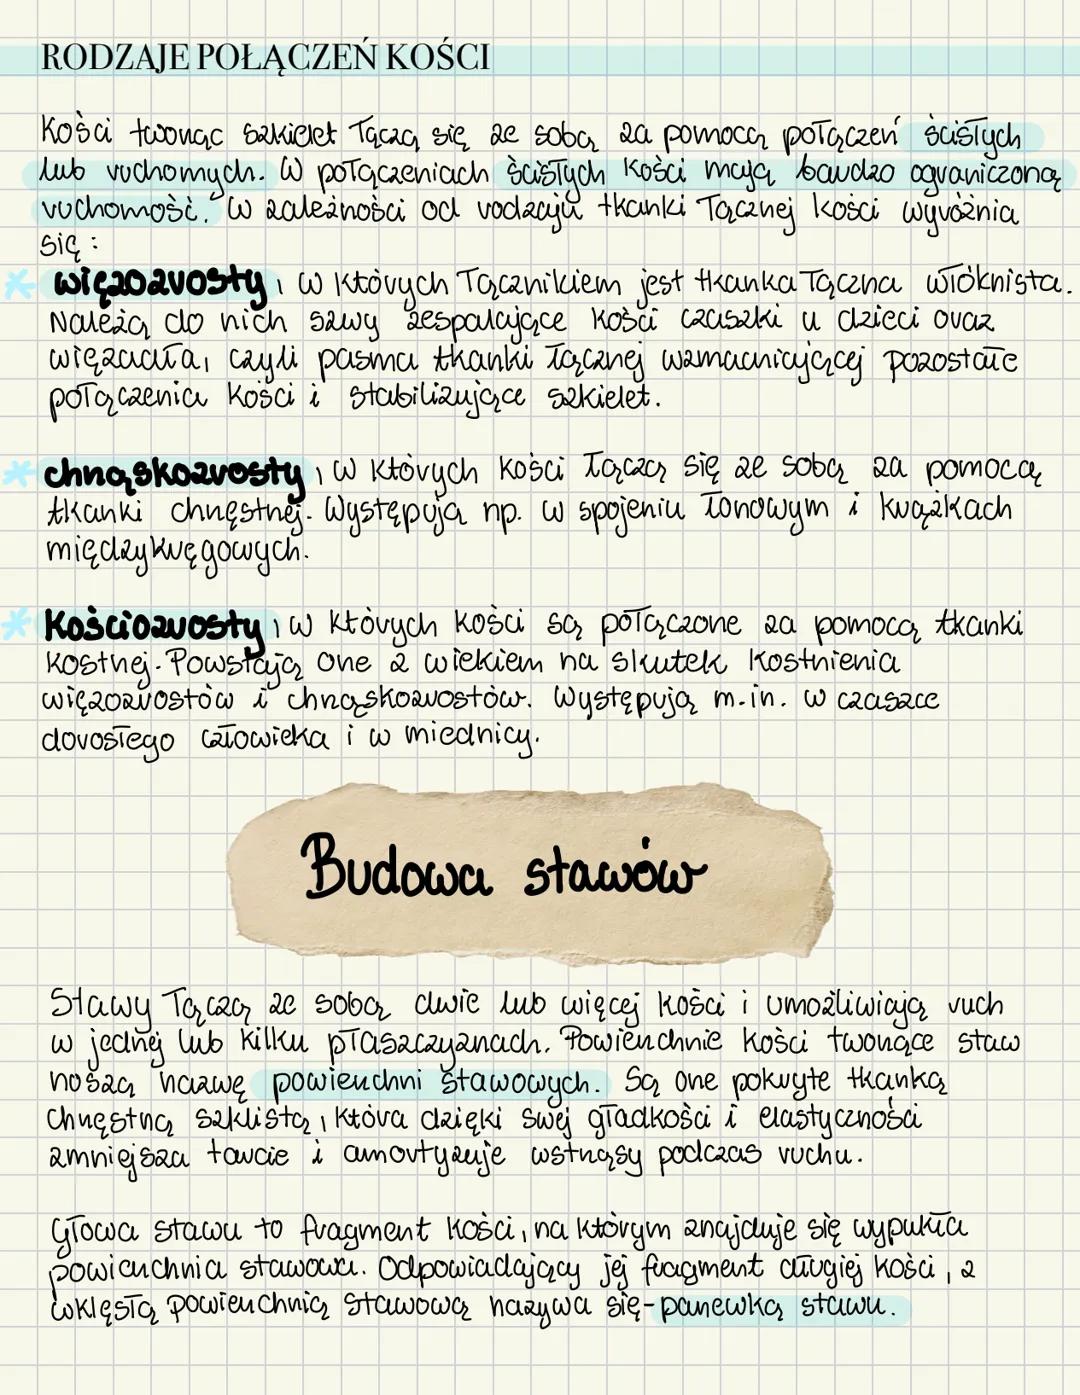 RODZAJE POŁĄCZEŃ KOŚCI
Kości tworząc szkielet łączą się ze sobą za pomocą połączeń ścisłych
lub ruchomych. W połączeniach ścisłych kości mają bardzo ograniczoną
ruchomość. W zależności od rodzaju tkanki łącznej kości wyróżnia
się:
* więzozrosty, w których łącznikiem jest tkanka łączna włóknista.
Należą do nich szwy zespalające kości czaszki u dzieci oraz
więzadła, czyli pasma tkanki łącznej wzmacniającej pozostałe
połączenia kości i stabilizujące szkielet.
* chrząskozrosty, w których kości łączą się ze sobą za pomocą
tkanki chrzęstnej. Występują np. w spojeniu łonowym i krążkach
międzykręgowych.
* Kościozrosty, w których kości są połączone za pomocą tkanki
kostnej. Powstają one z wiekiem na skutek kostnienia
więzozrostów i chrząskozrostów. Występują m.in. w czaszce
dorosłego człowieka i w miednicy.
Budowa stawów
Stawy łączą ze sobą dwie lub więcej kości i umożliwiają ruch
w jednej lub kilku płaszczyznach. Powierzchnie kości tworzące staw
noszą nazwę powierzchni stawowych. Są one pokryte tkanką
chrzęstną szklistą, która dzięki swej gładkości i elastyczności
zmniejsza tarcie i amortyzuje wstrząsy podczas ruchu.
Głowa stawu to fragment kości, na którym znajduje się wypukła
powierzchnia stawowa. Odpowiadający jej fragment drugiej kości, z
wklęsłą powierzchnią stawową nazywa się - panewką stawu.